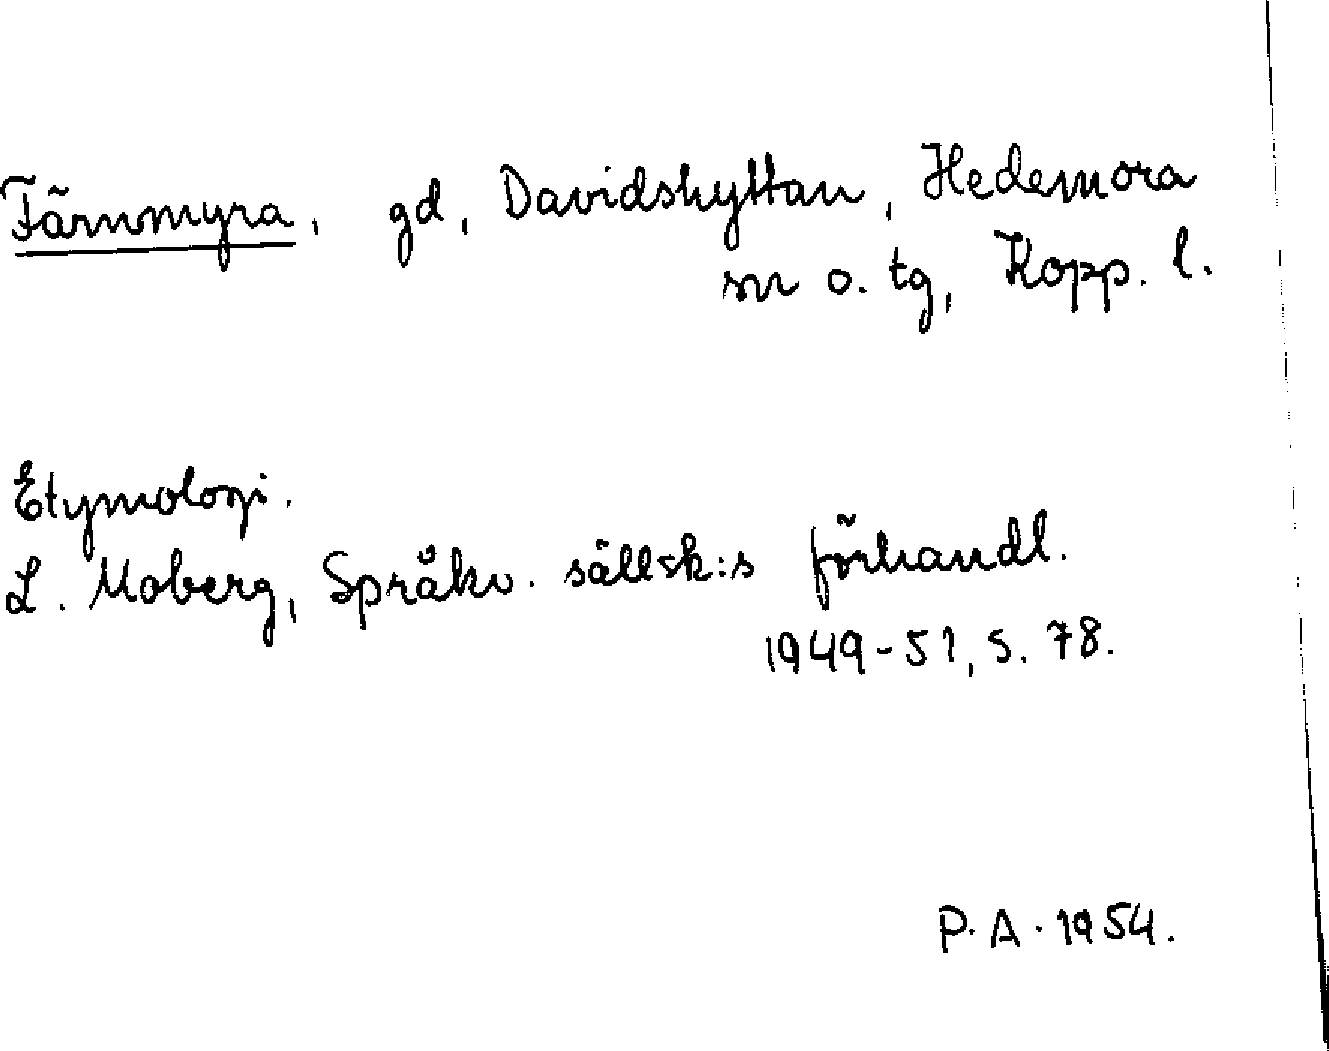 Färnmyra, gd, Davidshyttan, Hedemora
sn o. tg, Kopp. l.
Etymologi.
L. Moberg, Språkv. sällsk:s förhandl.
1949-51, s. 78.
P. A. 1954.